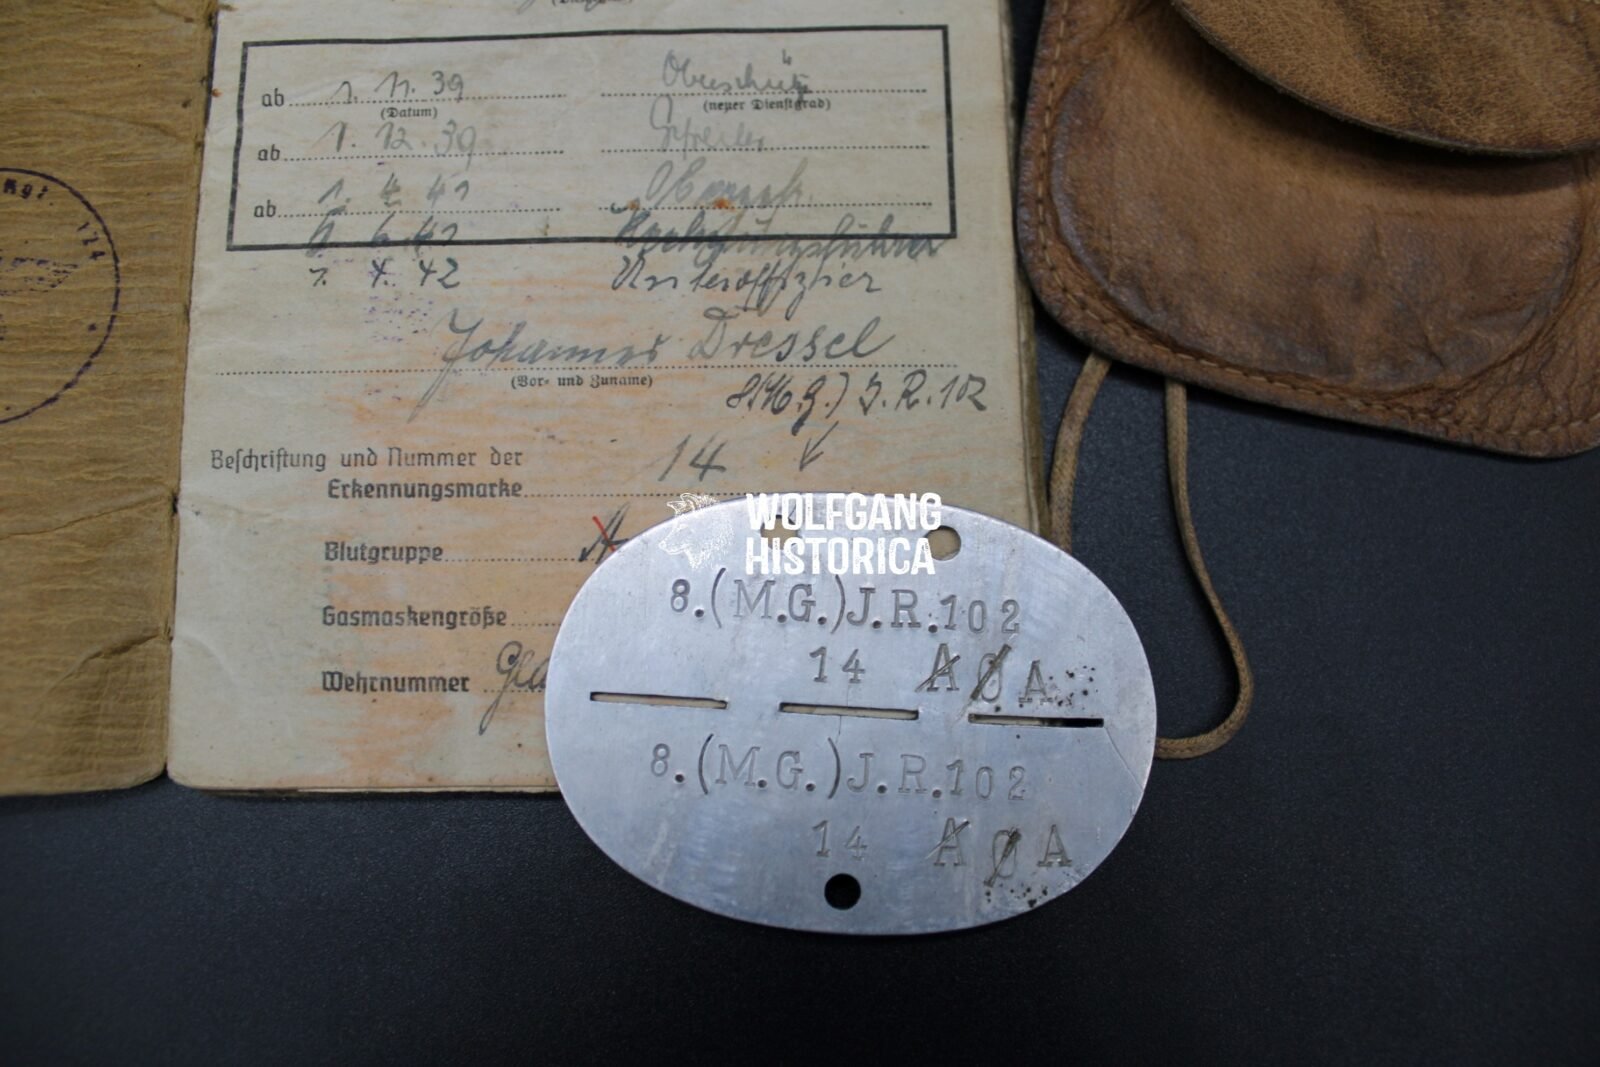 Rgt. 124
ab 1. 11. 39 Oberschütz
(Datum) (neuer Dienstgrad)
ab 1. 12. 39 Gefreiter
ab 1. 4. 41
6. 41
1. 4. 42 Unteroffizier
Johannes Dressel
(Vor- und Zuname)
8.(M.G.) J.R. 102
Beschriftung und Nummer der
Erkennungsmarke 14
Blutgruppe A
Gasmaskengröße
Wehrnummer
WOLFGANG
HISTORICA
8.(M.G.)J.R.102
14 A O A
8.(M.G.)J.R.102
14 A O A